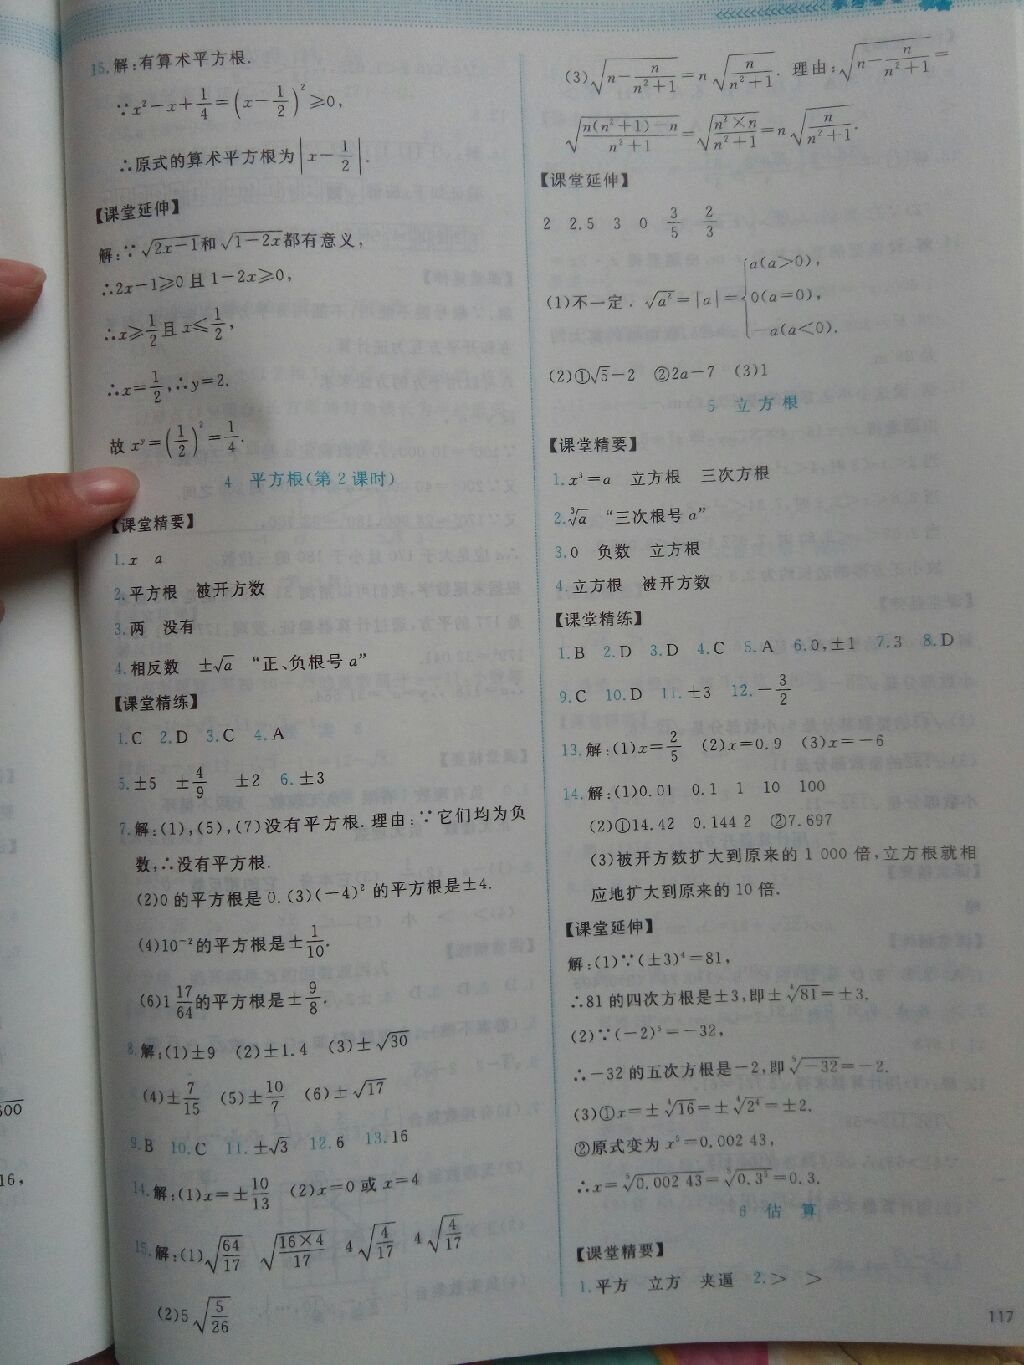 15.解:有算术平方根.
∵x²-x+1/4=(x-1/2)²≥0,
∴原式的算术平方根为|x-1/2|.
【课堂延伸】
解:∵√(2x-1)和√(1-2x)都有意义,
∴2x-1≥0且1-2x≥0,
∴x≥1/2且x≤1/2,
∴x=1/2,∴y=2.
故x^y=(1/2)²=1/4.
4 平方根(第2课时)
【课堂精要】
1.x a
2.平方根 被开方数
3.两 没有
4.相反数 ±√a “正、负根号a”
【课堂精练】
1.C 2.D 3.C 4.A
5.±5 ±4/9 ±2 6.±3
7.解:(1),(5),(7)没有平方根.理由:∵它们均为负
数,∴没有平方根.
(2)0的平方根是0.(3)(-4)²的平方根是±4.
(4)10⁻²的平方根是±1/10.
(6)1 17/64的平方根是±9/8.
8.解:(1)±9 (2)±1.4 (3)±√30
(4)±7/15 (5)±10/7 (6)±√17
9.B 10.C 11.±√3 12.6 13.16
14.解:(1)x=±10/13 (2)x=0或x=4
15.解:(1)√(64/17) √((16×4)/17) 4√(4/17) 4√(4/17)
(2)5√(5/26)
(3)√(n-n/(n²+1))=n√(n/(n²+1)). 理由:√(n-n/(n²+1))=
√((n(n²+1)-n)/(n²+1))=√((n²×n)/(n²+1))=n√(n/(n²+1)).
【课堂延伸】
2 2.5 3 0 3/5 2/3
(1)不一定. √a²=|a|={a(a>0), 0(a=0), -a(a<0).
(2)①√5-2 ②2a-7 (3)1
5 立方根
【课堂精要】
1.x³=a 立方根 三次方根
2.∛a “三次根号a”
3.0 负数 立方根
4.立方根 被开方数
【课堂精练】
1.B 2.D 3.D 4.C 5.A 6.0,±1 7.3 8.D
9.C 10.D 11.±3 12.-3/2
13.解:(1)x=2/5 (2)x=0.9 (3)x=-6
14.解:(1)0.01 0.1 1 10 100
(2)①14.42 0.144 2 ②7.697
(3)被开方数扩大到原来的1 000倍,立方根就相
应地扩大到原来的10倍.
【课堂延伸】
解:(1)∵(±3)⁴=81,
∴81的四次方根是±3,即±⁴√81=±3.
(2)∵(-2)⁵=-32,
∴-32的五次方根是-2,即⁵√-32=-2.
(3)①x=±⁴√16=±⁴√2⁴=±2.
②原式变为x⁵=0.002 43,
∴x=⁵√0.002 43=⁵√0.3⁵=0.3.
6 估算
【课堂精要】
1.平方 立方 夹逼 2.> >
117